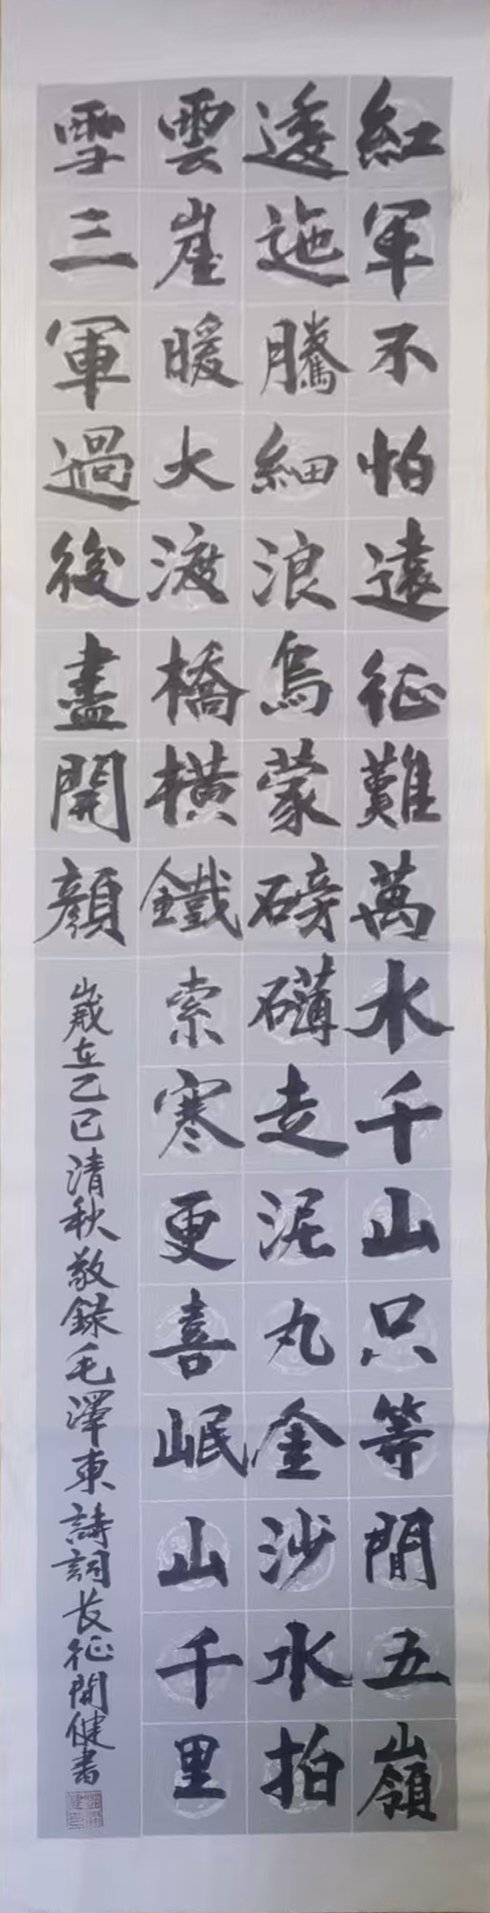 紅軍不怕遠征難萬水千山只等閒五嶺
逶迤騰細浪烏蒙磅礴走泥丸金沙水拍
雲崖暖大渡橋橫鐵索寒更喜岷山千里
雪三軍過後盡開顏
歲在乙巳清秋敬錄毛澤東詩詞長征開健書